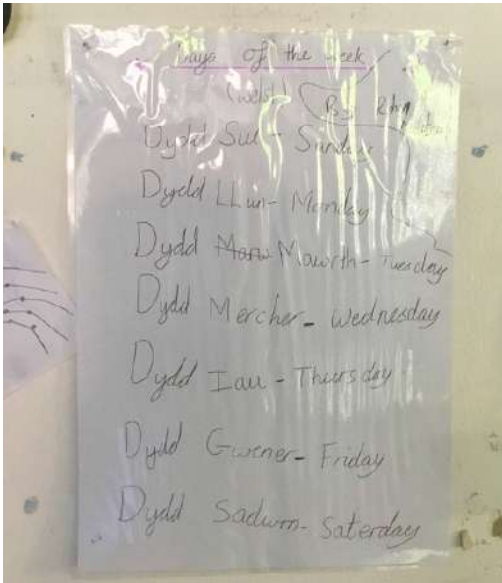 Days of the week
(welsh) By
Dydd Sul - Sunday
Dydd LLun - Monday
Dydd Mawrth - Tuesday
Dydd Mercher - Wednesday
Dydd Iau - Thursday
Dydd Gwener - Friday
Dydd Sadwrn - Saterday